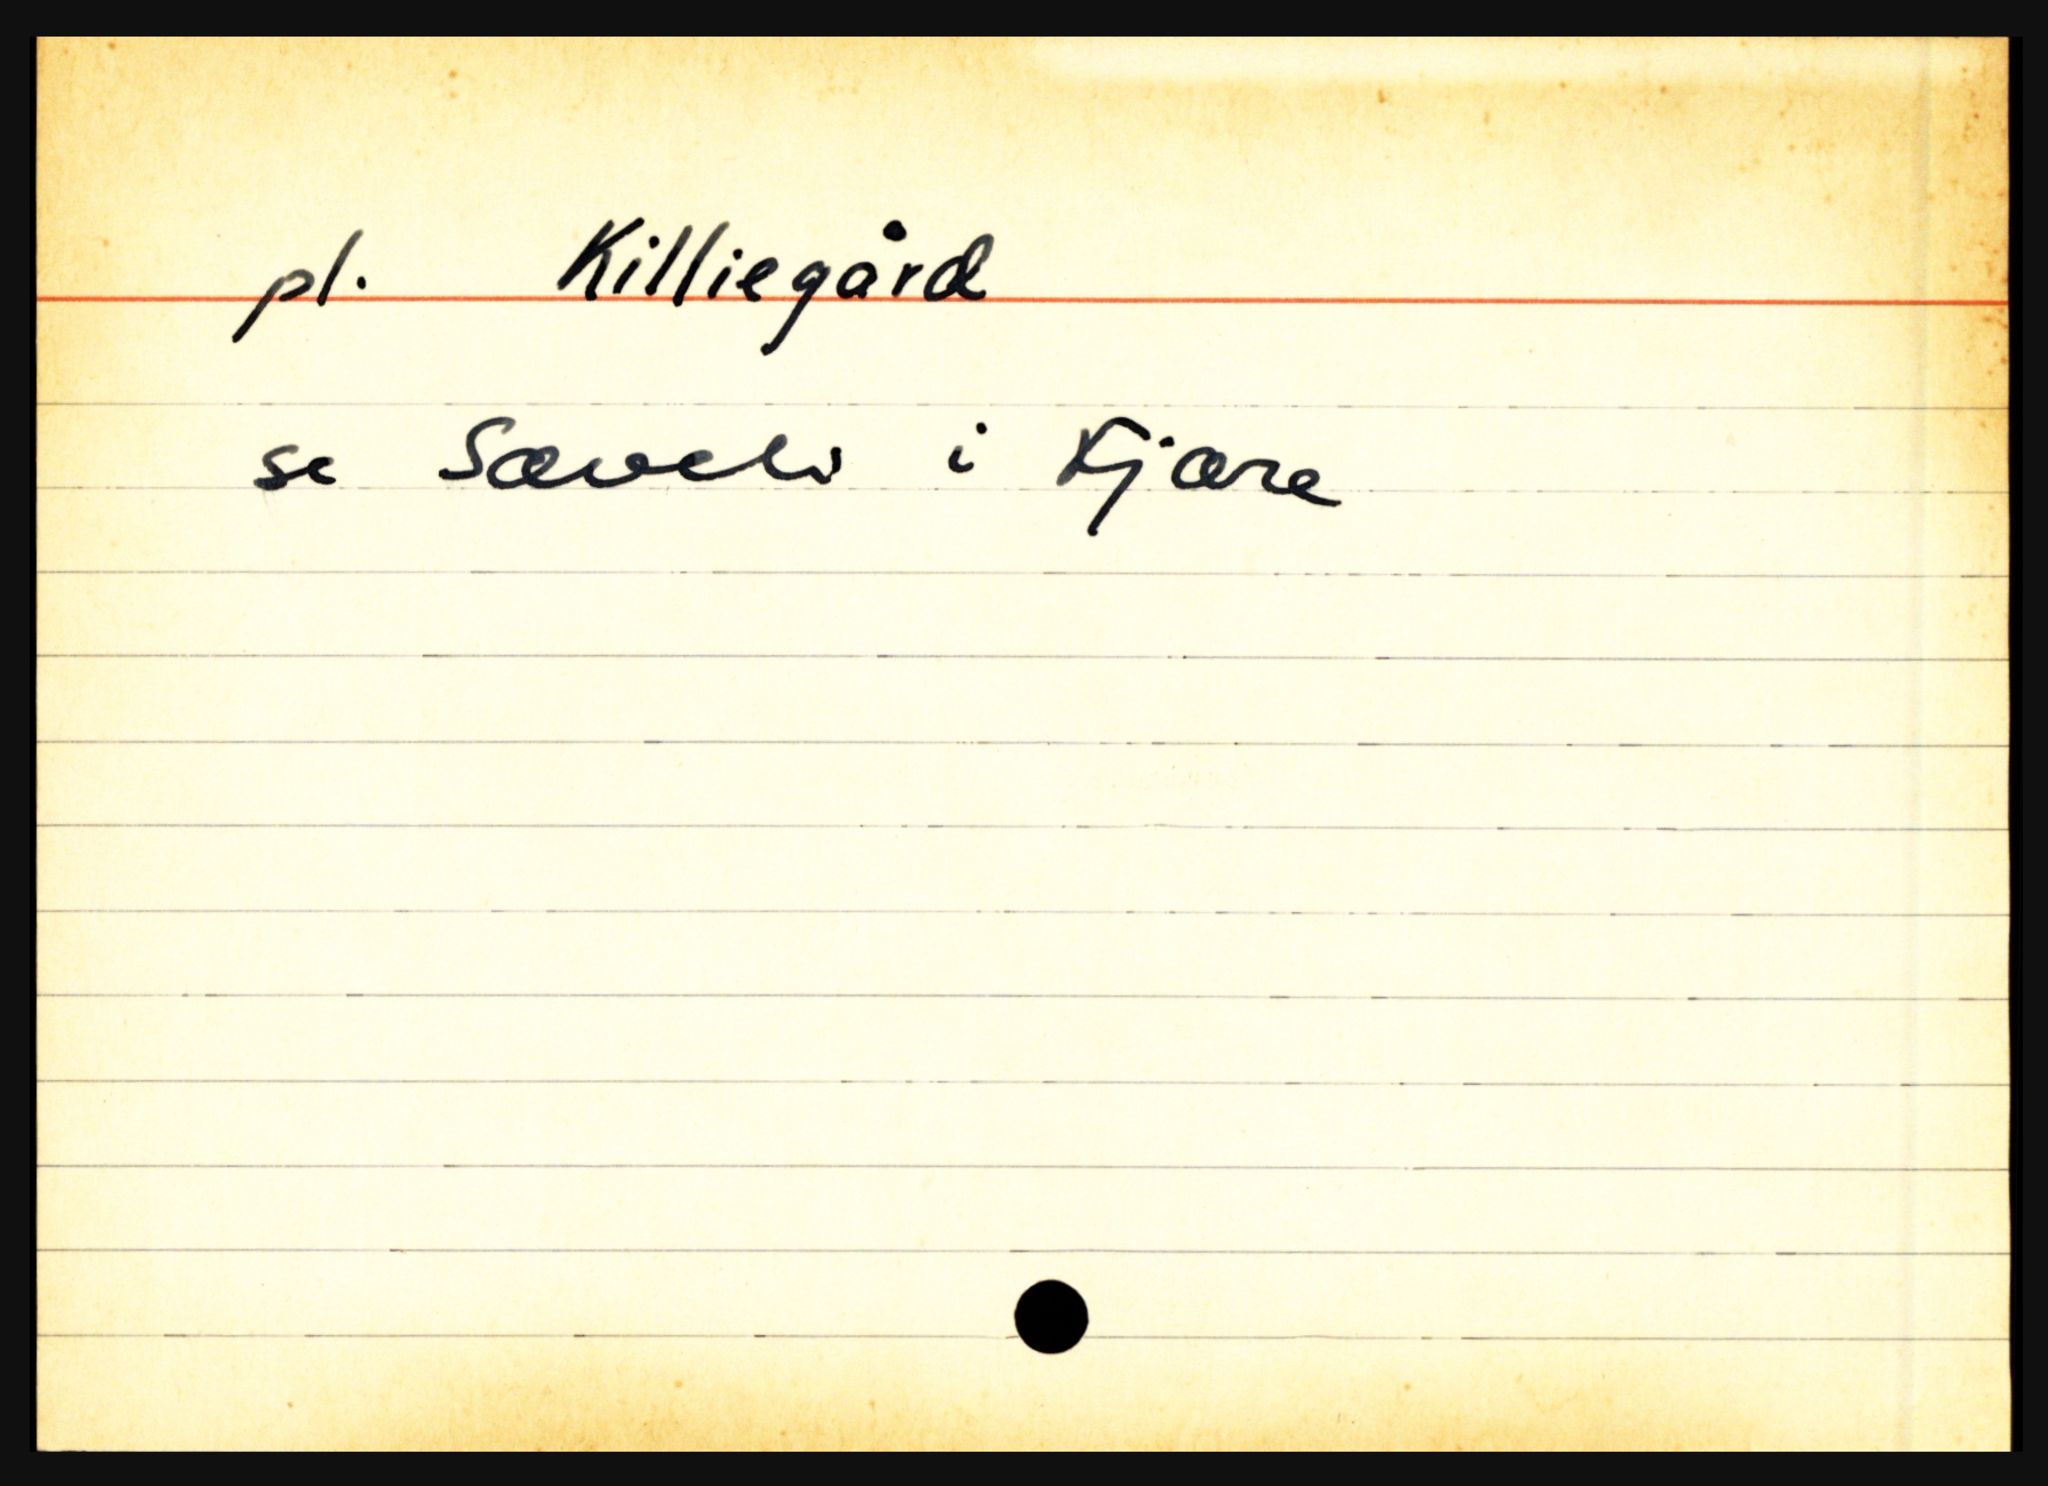 pl. Killiegård
se Sæveli i Fjære